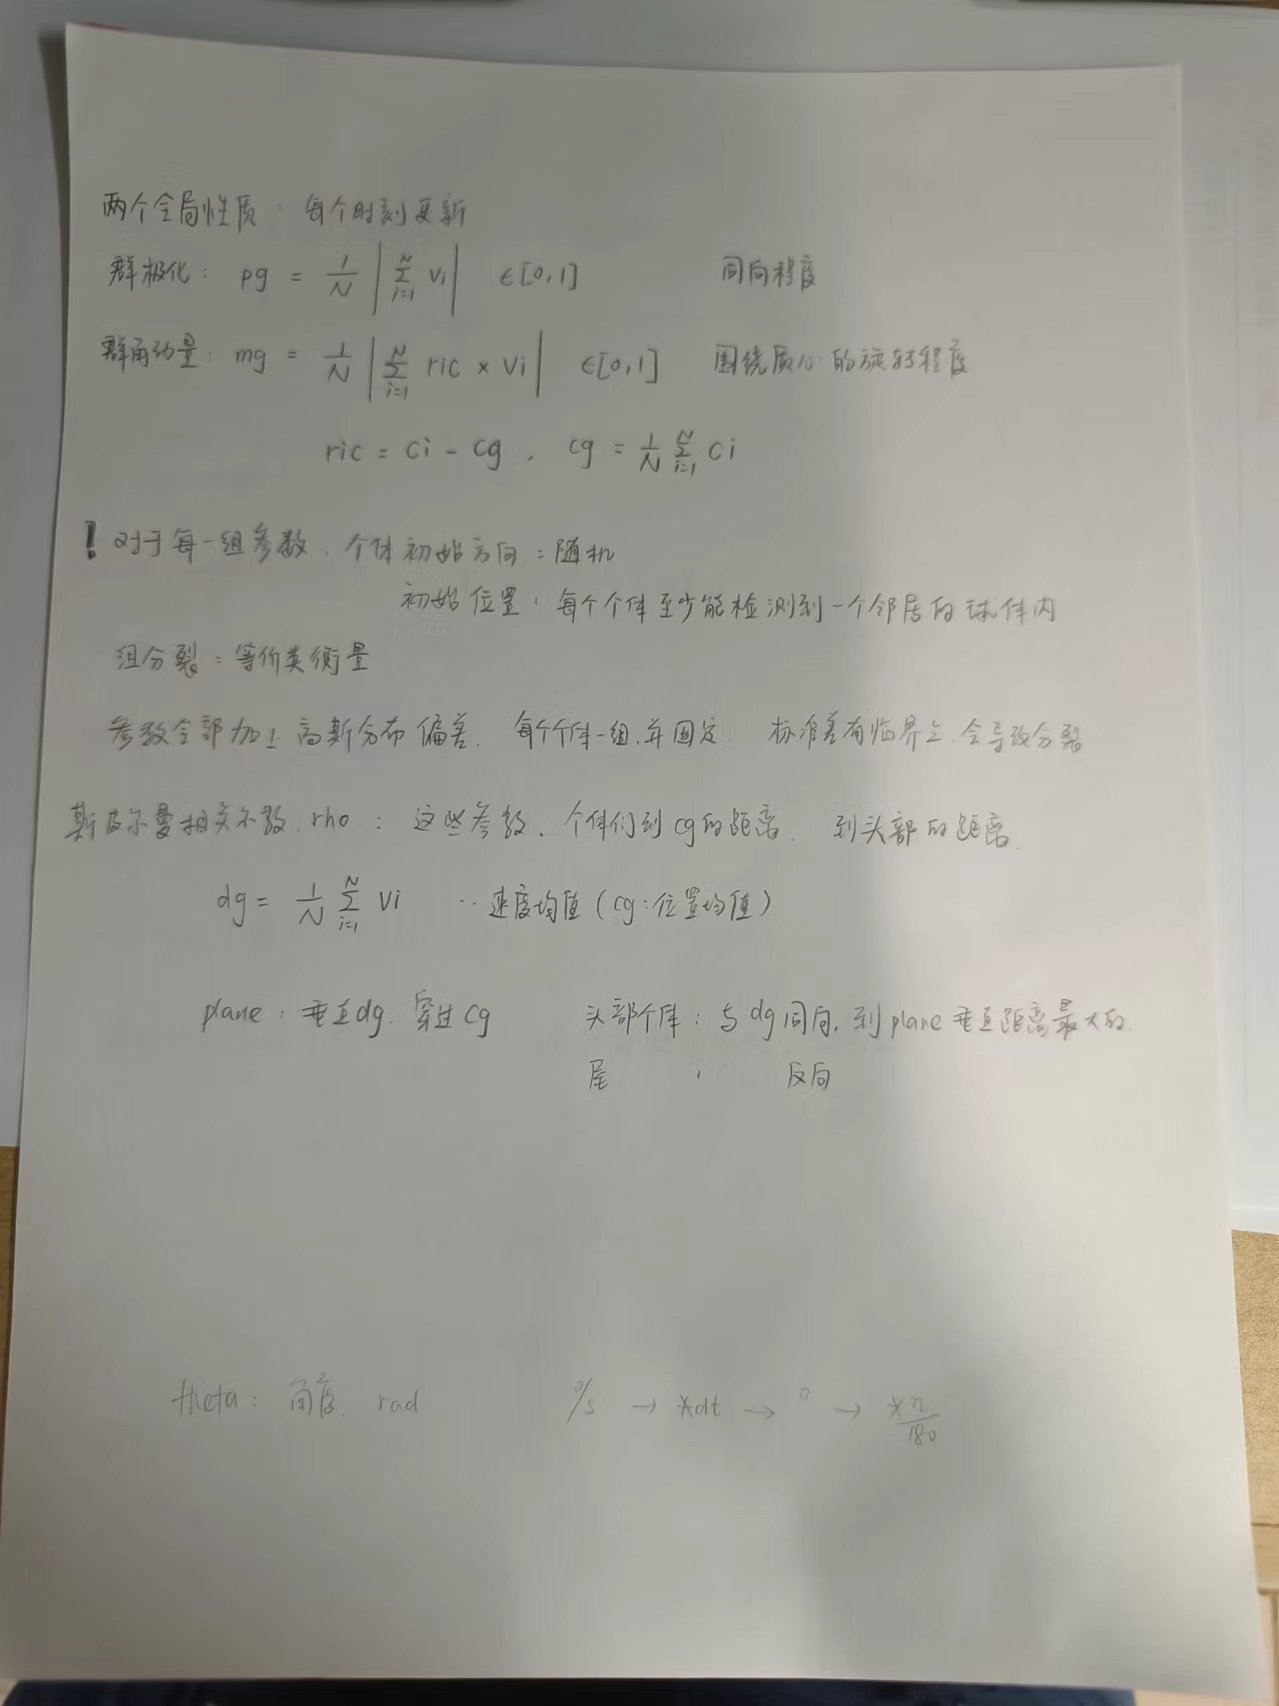 两个全局性质：每个时刻更新
群极化：pg = 1/N |∑_{i=1}^{N} vi| ∈[0,1] 同向程度
群角动量：mg = 1/N |∑_{i=1}^{N} ric × vi| ∈[0,1] 围绕质心的旋转程度
ric = ci - cg , cg = 1/N ∑_{i=1}^{N} ci
! 对于每一组参数，个体初始方向：随机
初始位置：每个个体至少能检测到一个邻居的球体内
组分裂：等价类衡量
参数全部加上高斯分布偏差，每个个体一组,并固定 标准差有临界，会导致分裂
斯皮尔曼相关系数 rho：这些参数、个体们到cg的距离、到头部的距离
dg = 1/N ∑_{i=1}^{N} vi ‥速度均值（cg:位置均值）
plane：垂直dg、穿过cg 头部个体：与dg同向,到plane垂直距离最大的
尾 , 反向
theta：角度、rad °/s → *dt → ° → *π/180